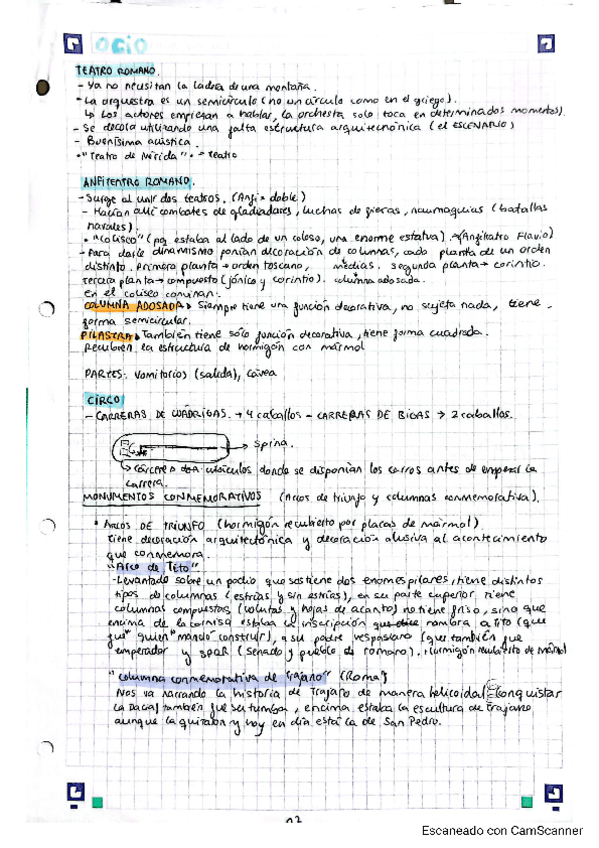 OCIO
TEATRO ROMANO.
- Ya no necesitan la ladera de una montaña.
- La orquestra es un semicírculo (no un círculo como en el griego).
↳ Los actores empiezan a hablar, la orchesta solo toca en determinados momentos).
- Se decora utilizando una falta estructura arquitecnónica (el ESCENARIO)
- Buenísima acústica.
• "Teatro de Mérida" • - Teatro
ANFITEATRO ROMANO.
- Surge al unir dos teatros. (Anfi = doble)
- Hacían allí combates de gladiadores, luchas de fieras, naumaquias (batallas
navales).
• "Coliseo" (por estaba al lado de un coloso, una enorme estatua). (Anfiteatro Flavio)
- Para darle DINAMISMO ponían decoración de columnas, cada planta de un orden
distinto. Primera planta → orden toscano, medias. segunda planta → corintio.
tercera planta → compuesto (jónico y corintio). columna adosada.
En el coliseo combinan:
COLUMNA ADOSADA siempre tiene una función decorativa, no sujeta nada, tiene
forma semicircular.
PILASTRA También tiene sólo función decorativa, tiene forma cuadrada.
Recubren la estructura de hormigón con mármol
PARTES: Vomitorios (salida), cávea
CIRCO
- CARRERAS DE CUÁDRIGAS. → 4 caballos - CARRERAS DE BIGAS → 2 caballos.
→ Spina.
↳ cárceres cubículos donde se disponían los carros antes de empezar la
carrera.
MONUMENTOS CONMEMORATIVOS (Arcos de triunfo y columnas conmemorativa).
• ARCOS DE TRIUNFO (hormigón recubierto por placas de mármol)
tiene decoración arquitectónica y decoración alusiva al acontecimiento
que conmemora.
"Arco de Tito"
- Levantado sobre un podio que sostiene dos enormes pilares, tiene distintos
tipos de columnas (estrías y sin estrías), en su parte superior tiene
columnas compuestas (volutas y hojas de acanto) no tiene friso, sino que
encima de la cornisa estaba la inscripción que nombra a tito (que
fue quien mandó construir), a su padre vespasiano (que también fue
emperador y SPQR (senado y pueblo de romano). Hormigón recubierto de mármol
"Columna conmemorativa de Trajano" (Roma)
Nos va narrando la historia de Trajano de manera helicoidal (conquistar
la Dacia) también fue su tumba, encima estaba la escultura de Trajano
aunque la quitaron y hoy en día está la de San Pedro.
Escaneado con CamScanner